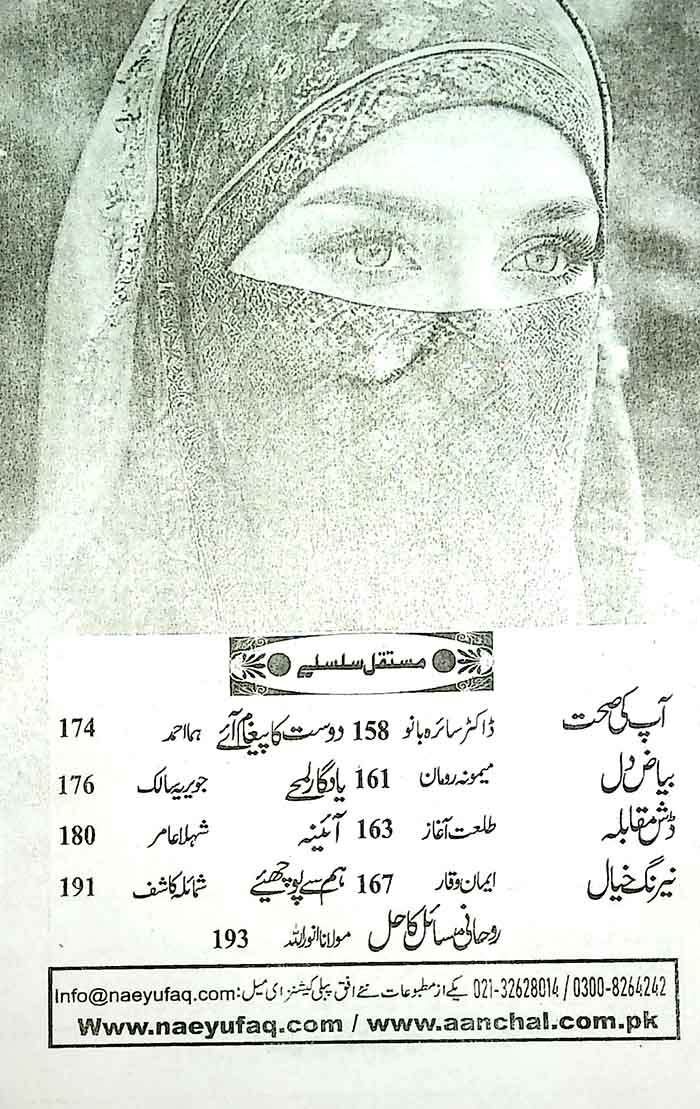 مستقل سلسلے
آپ کی صحت ڈاکٹر سائرہ بانو 158 دوست کا پیغام آئے ہما احمد 174
بیاض دل میمونہ رومان 161 یادگار لمحے جویریہ سالک 176
ڈش مقابلہ طلعت آغاز 163 آئینہ شہلا عامر 180
نیرنگ خیال ایمان وقار 167 ہم سے پوچھیئے شمائلہ کاشف 191
روحانی مسائل کا حل مولانا انور اللہ 193
021-32628014 / 0300-8264242 یکے از مطبوعات نئے افق پبلی کیشنز ای میل: Info@naeyufaq.com
Www.naeyufaq.com / www.aanchal.com.pk